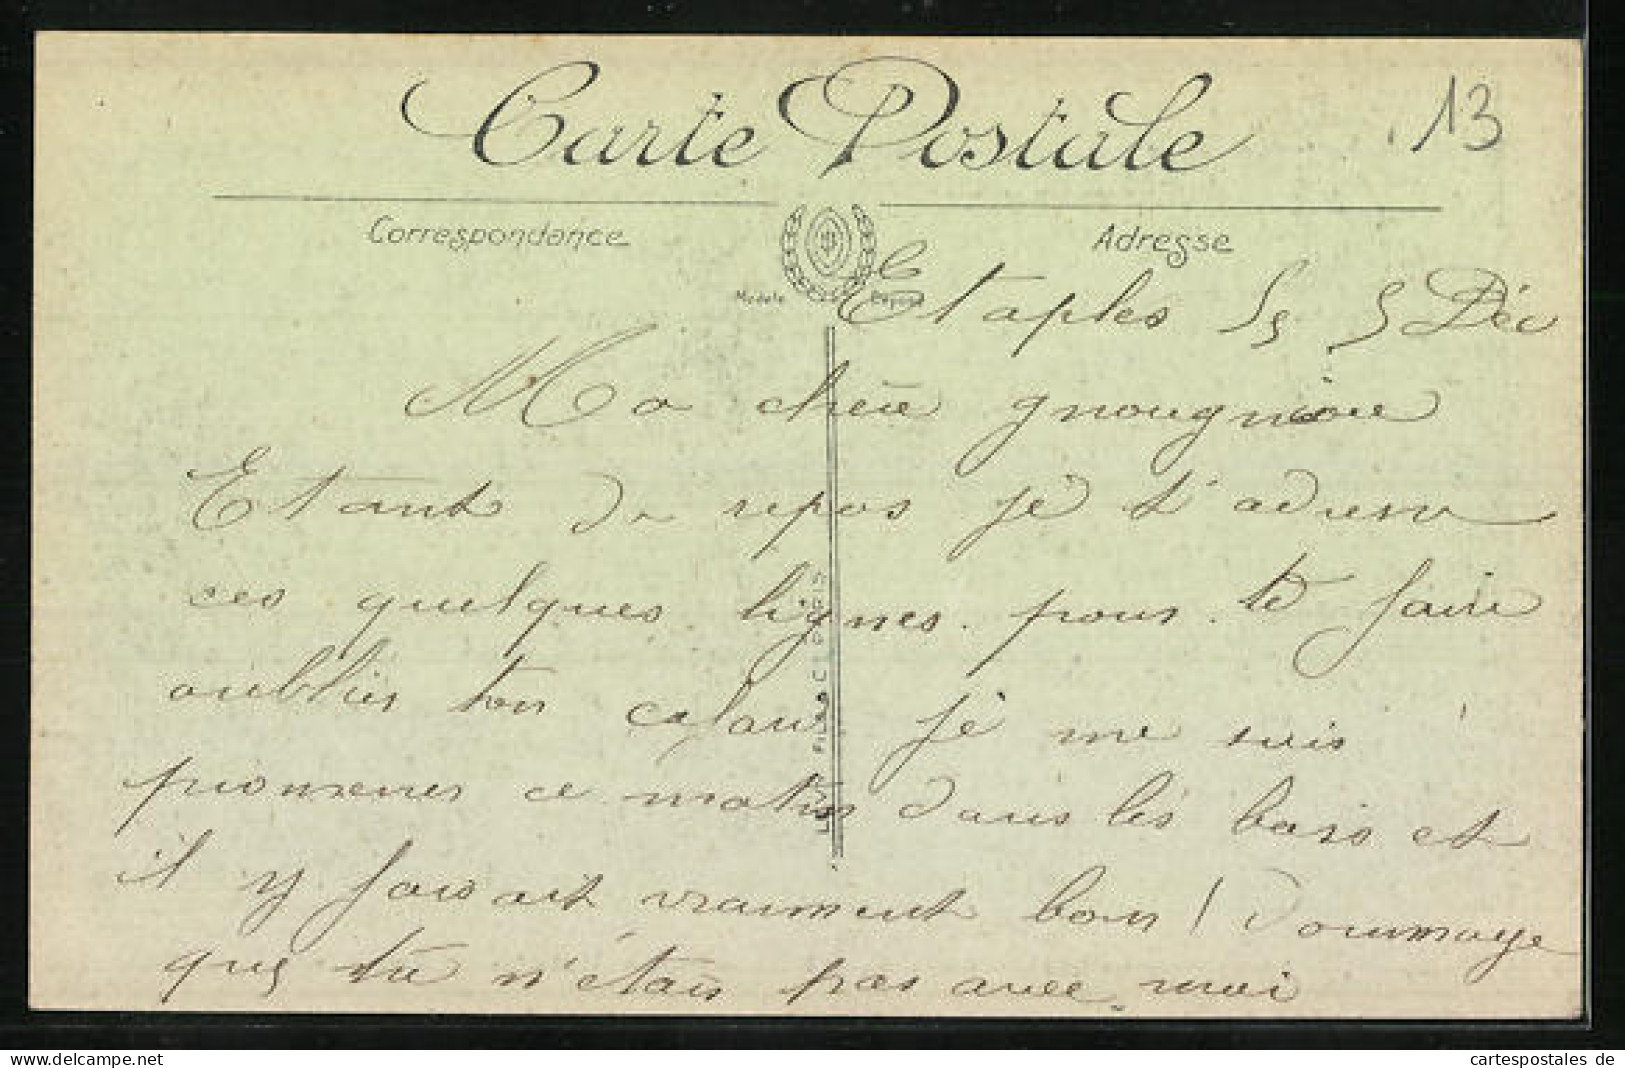 Carte Postale
13
Correspondance
Adresse
Modèle Déposé
Etaples 5 Déc
Ma chère
Etant de repos je t'adresse
ces quelques lignes pour te faire
oublier ton cafard je me suis
promener ce matin dans les bois et
il y faisait vraiment bon ! Dommage
que tu n'étais pas avec moi
cartespostales.de